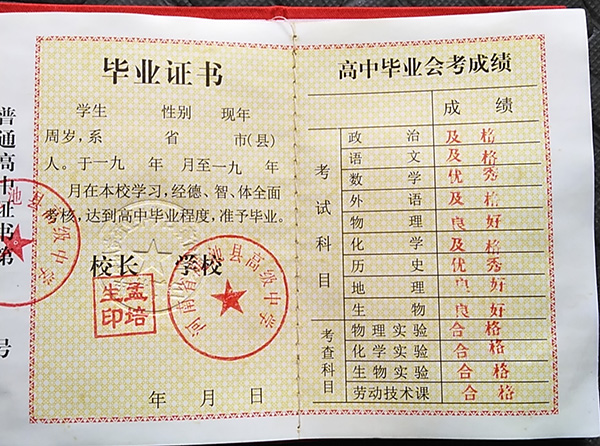 普通高中证书第
号
毕业证书
学生 性别 现年
周岁,系 省 市(县)
人。于一九 年 月至一九 年
月在本校学习,经德、智、体全面
考核,达到高中毕业程度,准予毕业。
校长 学校
孟培
生印
河南省 池县高级中学
池县高级中学
年 月 日
高中毕业会考成绩
成绩
考试科目
政治 及格
语文 及格
数学 优秀
外语 及格
物理 良好
化学 及格
历史 优秀
地理 良好
生物 良好
考查科目
物理实验 合格
化学实验 合格
生物实验 合格
劳动技术课 合格